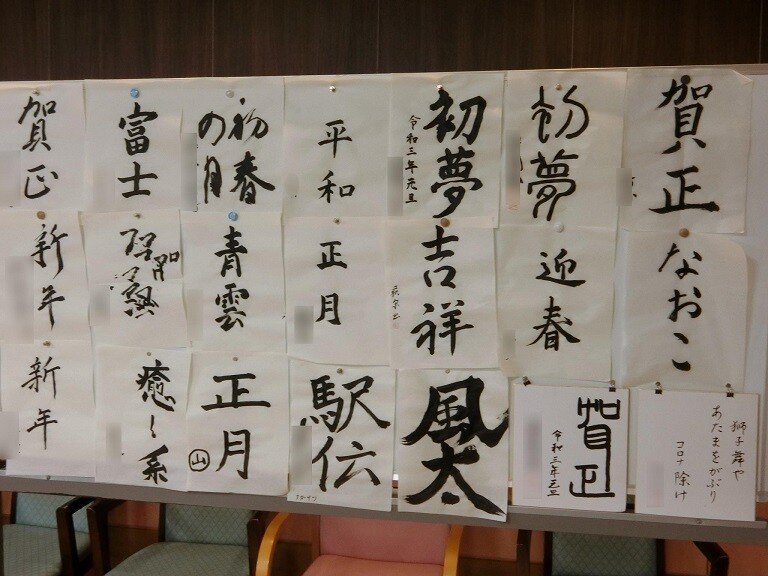 賀正
初夢
初夢
令和三年元旦
平和
初春
の月
富士
賀正
なおこ
迎春
吉祥
正月
青雲
新年
獅子舞や
あたまをがぶり
コロナ除け
賀正
令和三年元旦
風太
駅伝
正月
山
癒し系
新年